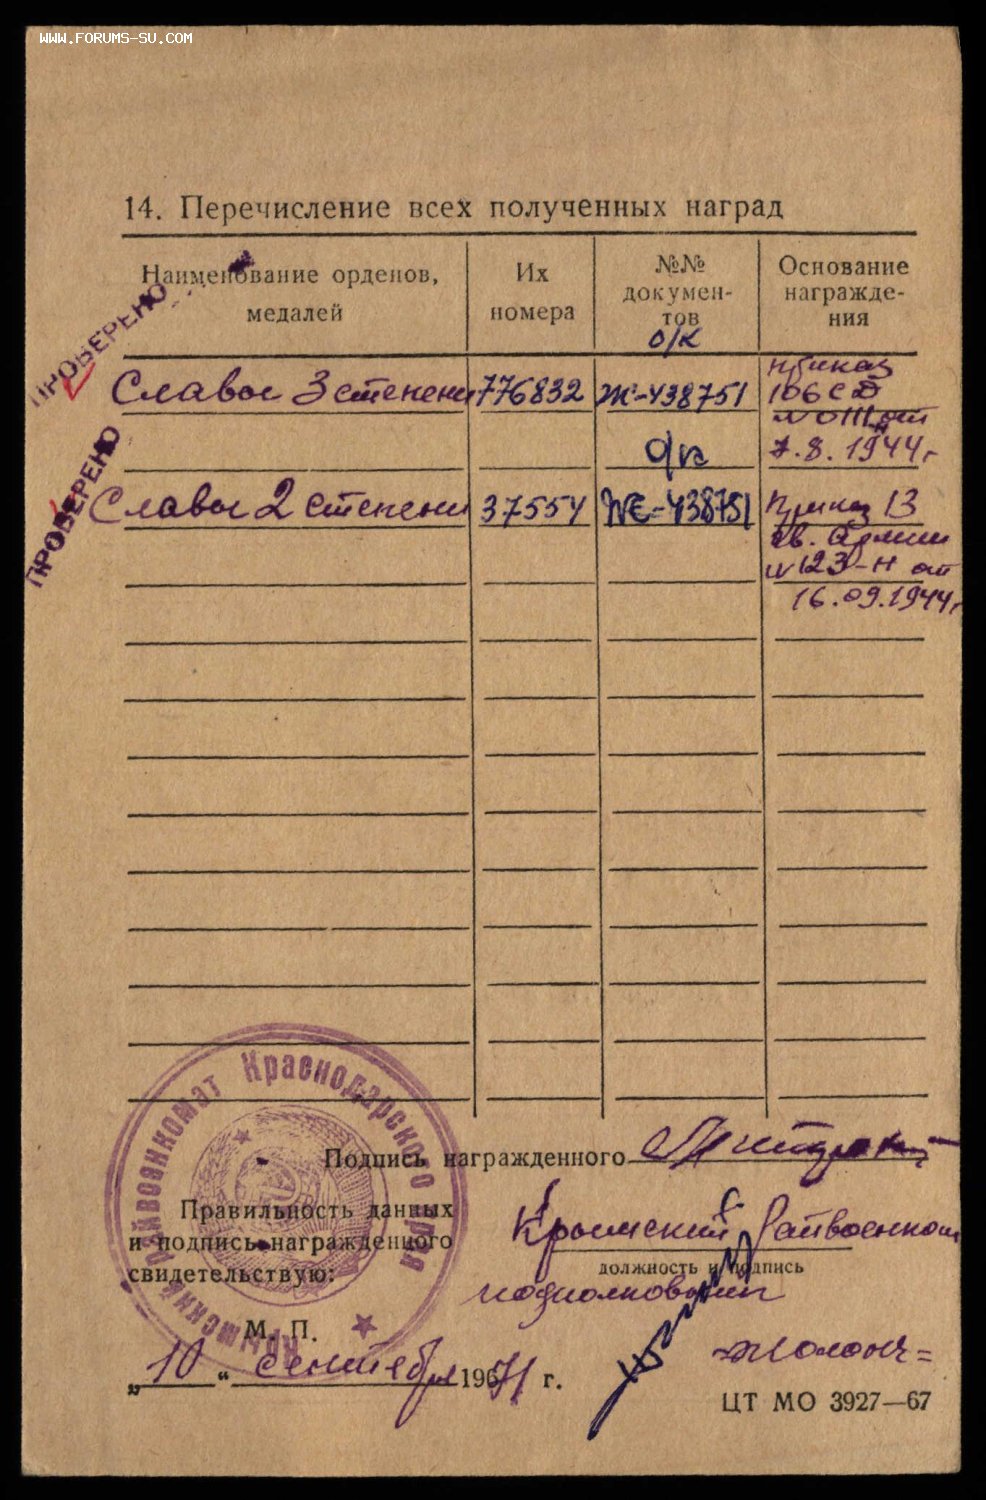 WWW.FORUMS-SU.COM
14. Перечисление всех полученных наград
Наименование орденов, медалей
Их номера
№№ докумен-тов
о/к
Основание награжде-ния
ПРОВЕРЕНО
Славы 3 степени 776832 438751 приказ
106 СД
N 0111 от
7.8.1944 г.
о/к
ПРОВЕРЕНО
Славы 2 степени 37554 438751 Приказ 13
гв. Армии
N 123-н от
16.09.1944 г.
Подпись награжденного
Правильность данных
и подпись награжденного
свидетельствую:
Крымский Райвоенком
должность и подпись
подполковник
М. П.
„10“ сентября 1971 г.
ЦТ МО 3927—67
Крымский райвоенкомат Краснодарского края